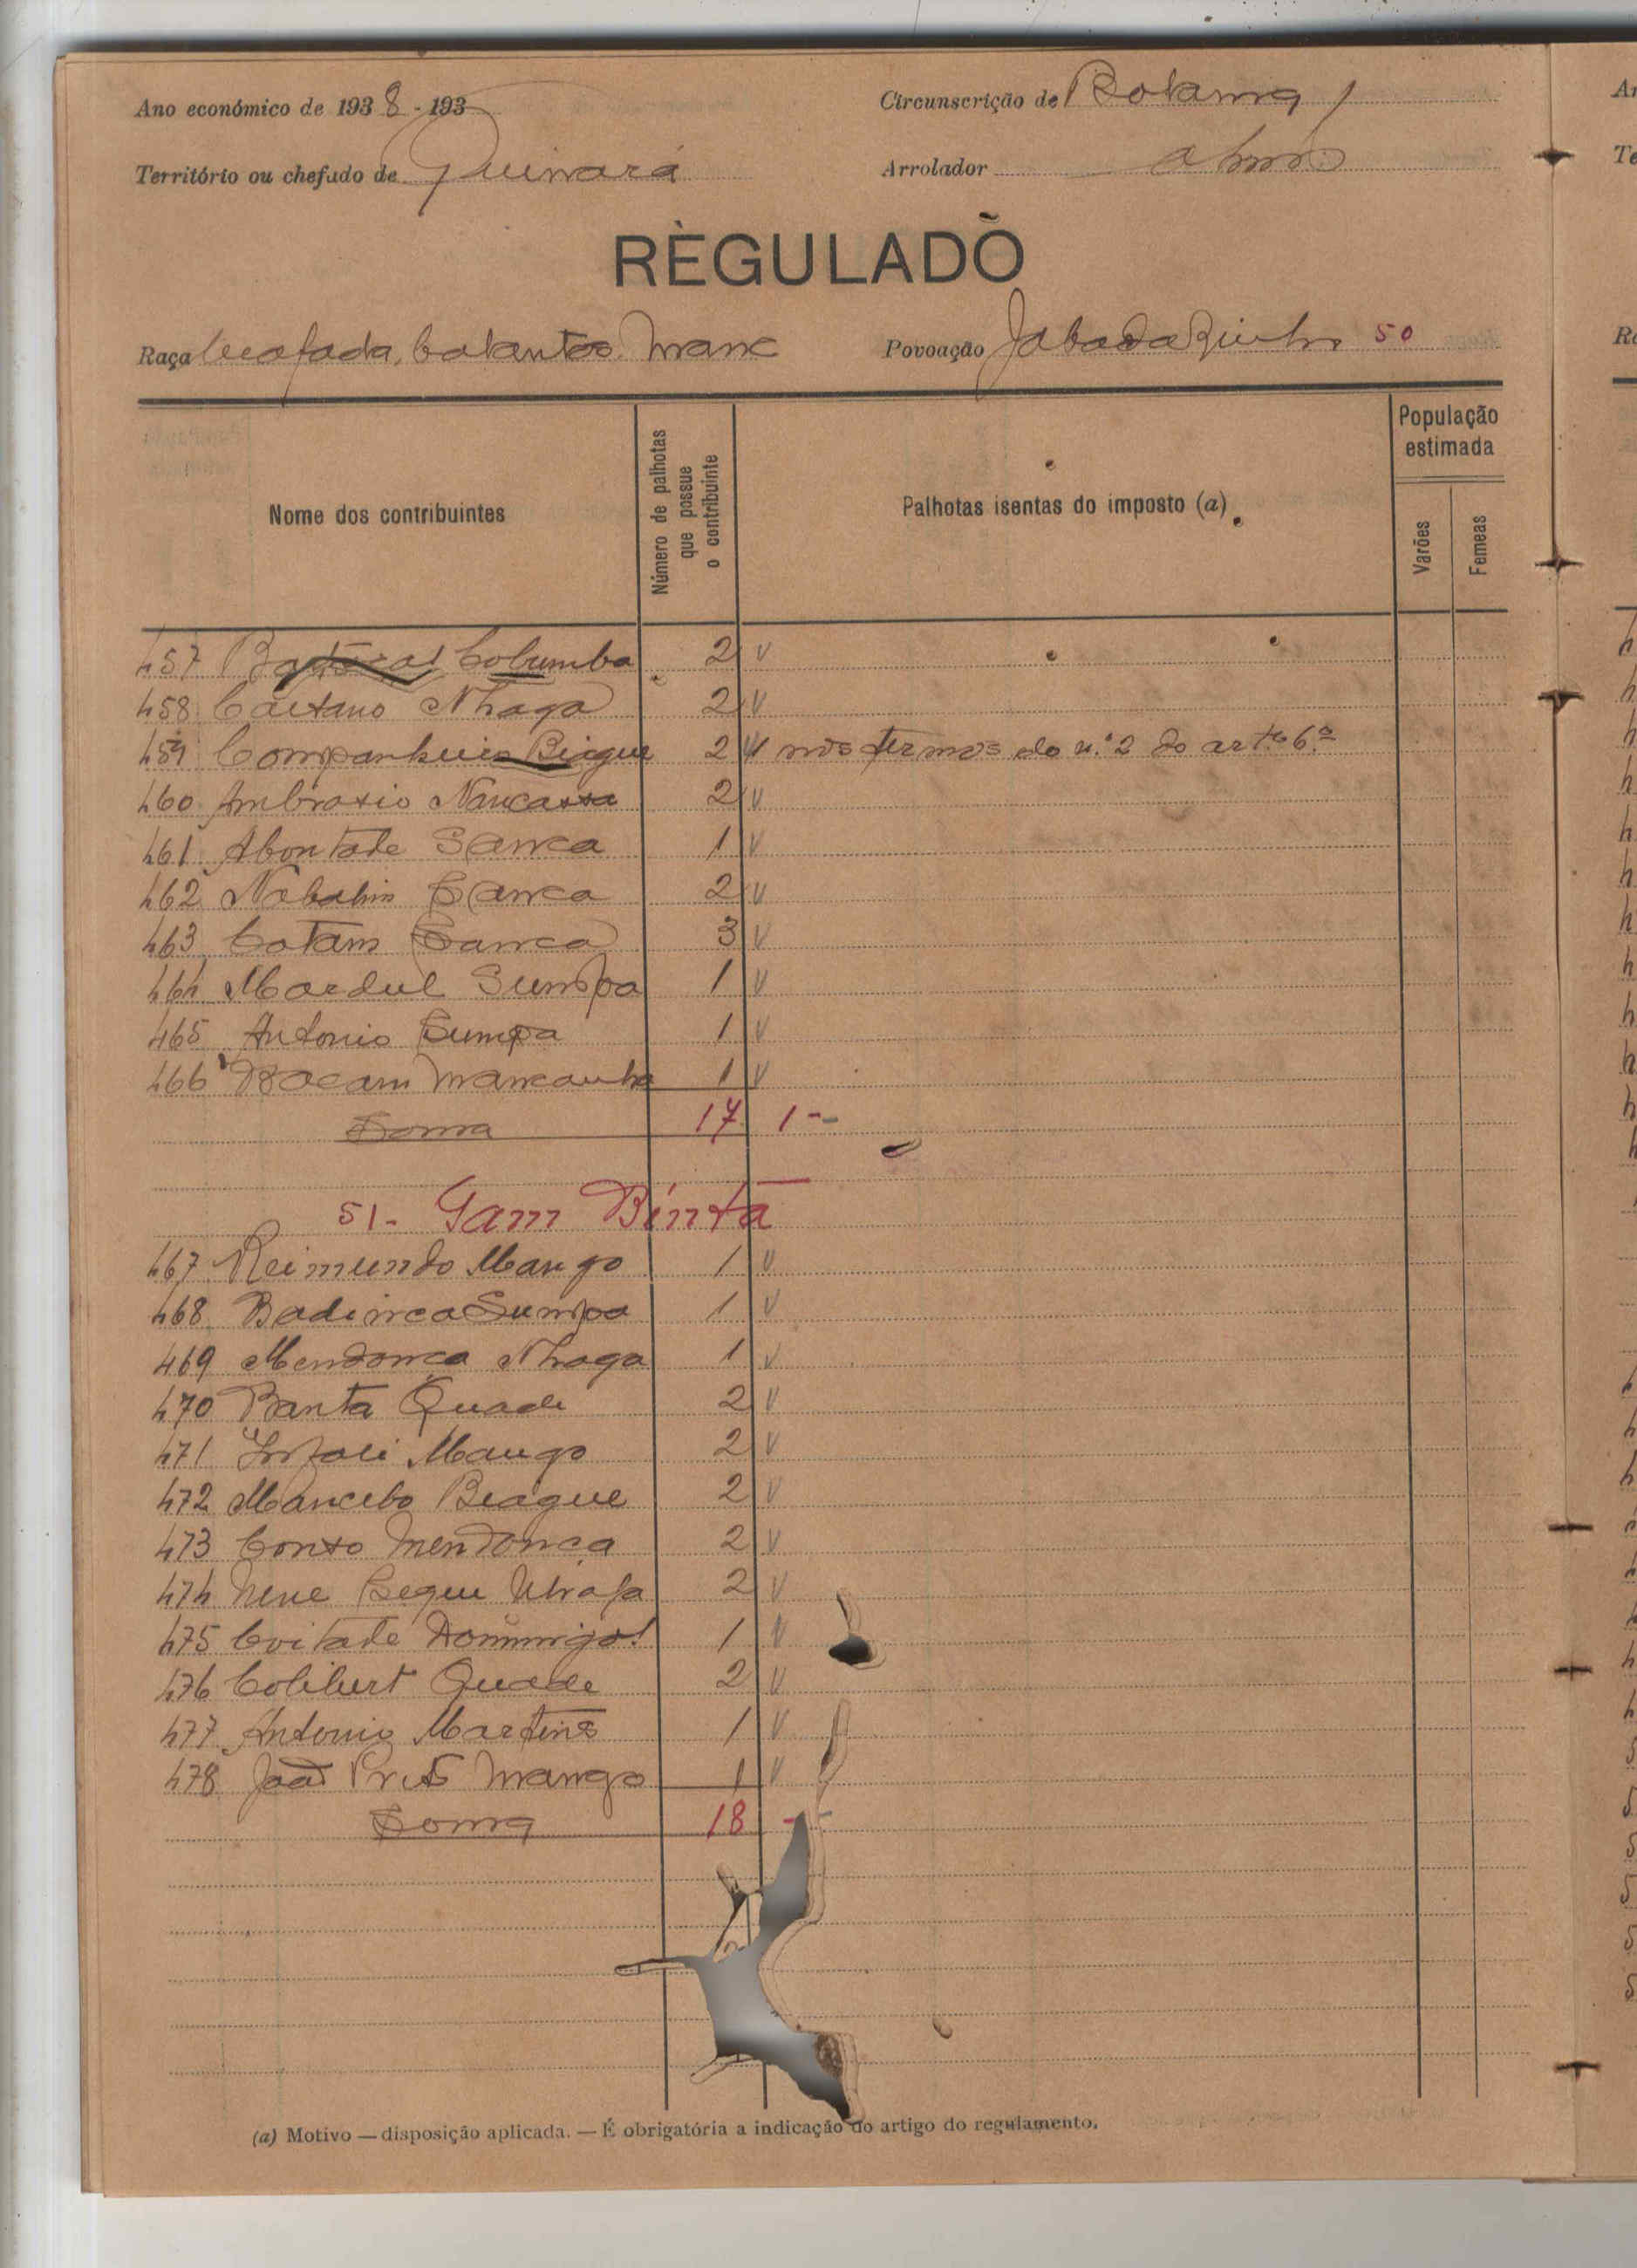 Ano económico de 1938 - 193
Circunscrição de Bolama
Território ou chefado de Quinará
Arrolador
REGULADO
Raça Beafada, Balantas, Manc
Povoação Jabadazinho 50
Nome dos contribuintes
Número de palhotas que possue o contribuinte
Palhotas isentas do imposto (a)
População estimada
Varões
Femeas
457 Columba 2 v
458 Caetano Nhaga 2 v
459 Companheiro Biague 2 nos termos do n.º 2 do artº 6º
460 Ambrosio Nancassa 2 v
461 Abontade Sanca 1 v
462 Sanca 2 v
463 Cotam Sanca 3 v
464 Sumpa 1 v
465 Antonio Sumpa 1 v
466 Mancanha 1 v
Soma 17 1 -
51- Gam Bintá
467 Reimundo Mango 1 v
468 Badinca Sumpa 1 v
469 Mendonca Nhaga 1 v
470 Banta Quade 2 v
471 Mango 2 v
472 Mancebo Biague 2 v
473 Mendonça 2 v
474 Nene 2 v
475 Domingos 1 v
476 Quade 2 v
477 Antonio Martins 1 v
478 João Mango 1 v
Soma 18 -
(a) Motivo — disposição aplicada. — É obrigatória a indicação do artigo do regulamento.